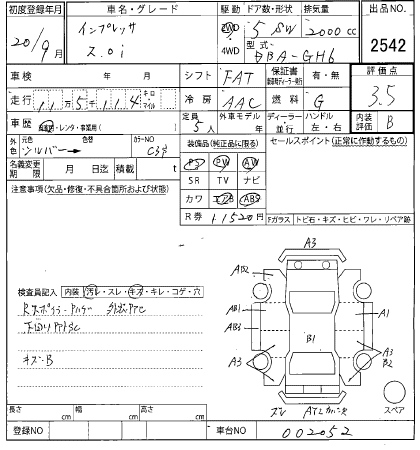 初度登録年月
車名・グレード
駆動 ドア数・形状 排気量
出品NO.
20/9月
インプレッサ
2WD 5 SW 2000cc
2542
2.0i
4WD 型式 DBA-GH6
車検 年 月
シフト FAT
保証書 有・無
評価点
走行 11万5千114 キロ マイル
冷房 AAC
燃料 G
3.5
車歴 自家用・レンタ・事業用( )
定員 5人
外車モデル 年
ディーラー 並行
ハンドル 左・右
内装評価 B
外色 元色 シルバー→ 色替 カラーNO. C3S
装備品(純正品に限る)
セールスポイント(正常に作動するもの)
PS PW AW
名義変更期限 月 日迄 積載 t
SR TV ナビ
注意事項(欠品・修復・不具合箇所および状態)
カワ エアB ABS
R券 11520円
Fガラス トビ石・キズ・ヒビ・ワレ・リペア跡
A3
検査員記入 内装 汚レ・スレ・キズ・キレ・コゲ・穴
AB2
AB1
A1
AB3
B1
キズ・B
A3
A3
B2
長さ cm 幅 cm 高さ cm
スペア
登録NO
車台NO 002052